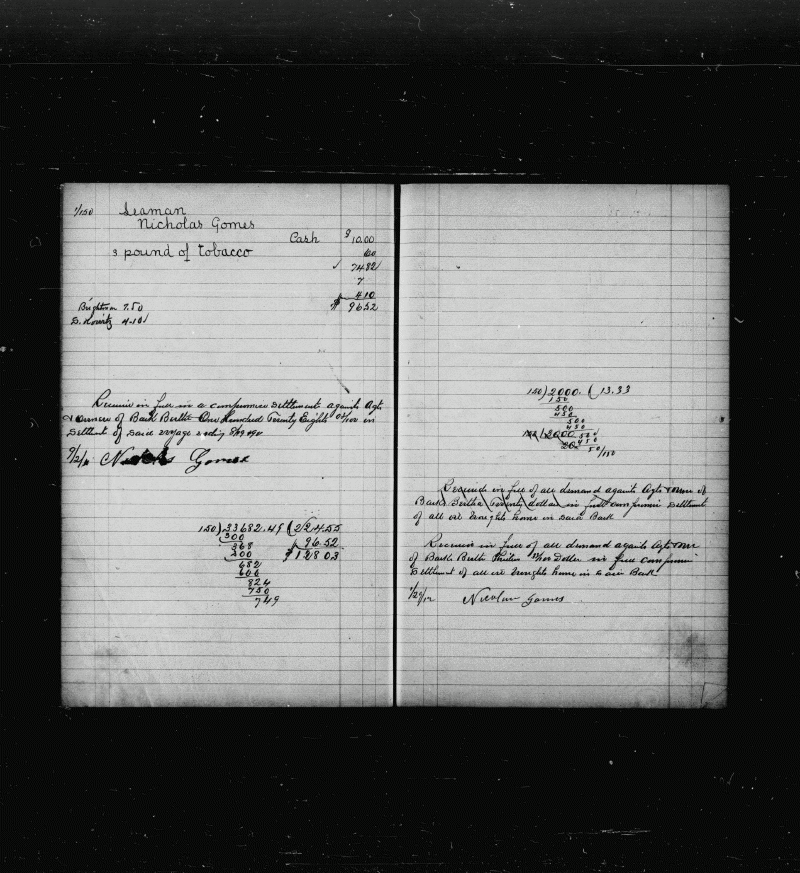 1/150 Seaman
Nicholas Gomes
Cash $ 10.00
3 pound of tobacco 60
√ 74.82
7
4 10
Brightman 7.50 $ 96 52
S. Horvitz 4-10
Receive in full in a compromise settlement againts Agts
& owners of Bark Bertha One Hundred Twenty Eights 03/100 in
settlment of said voyage
9/2/11 Gomes
150)33682.49(224.55
300 96.52
368 $128 03
300
682
600
824
750
749
150)2000.(13.33
150
500
450
500
450
500
450
50/150
Receive in full of all demand againts Agts & owner of
Bark Bertha Twenty dollars in full compromise settlment
of all oil brought home in said Bark
Receive in full of all demand againts Agts & owner
of Bark Bertha Thirteen 33/100 Dollar in full compromise
settlment of all oil brought home in said Bark
Nicolau Gomes